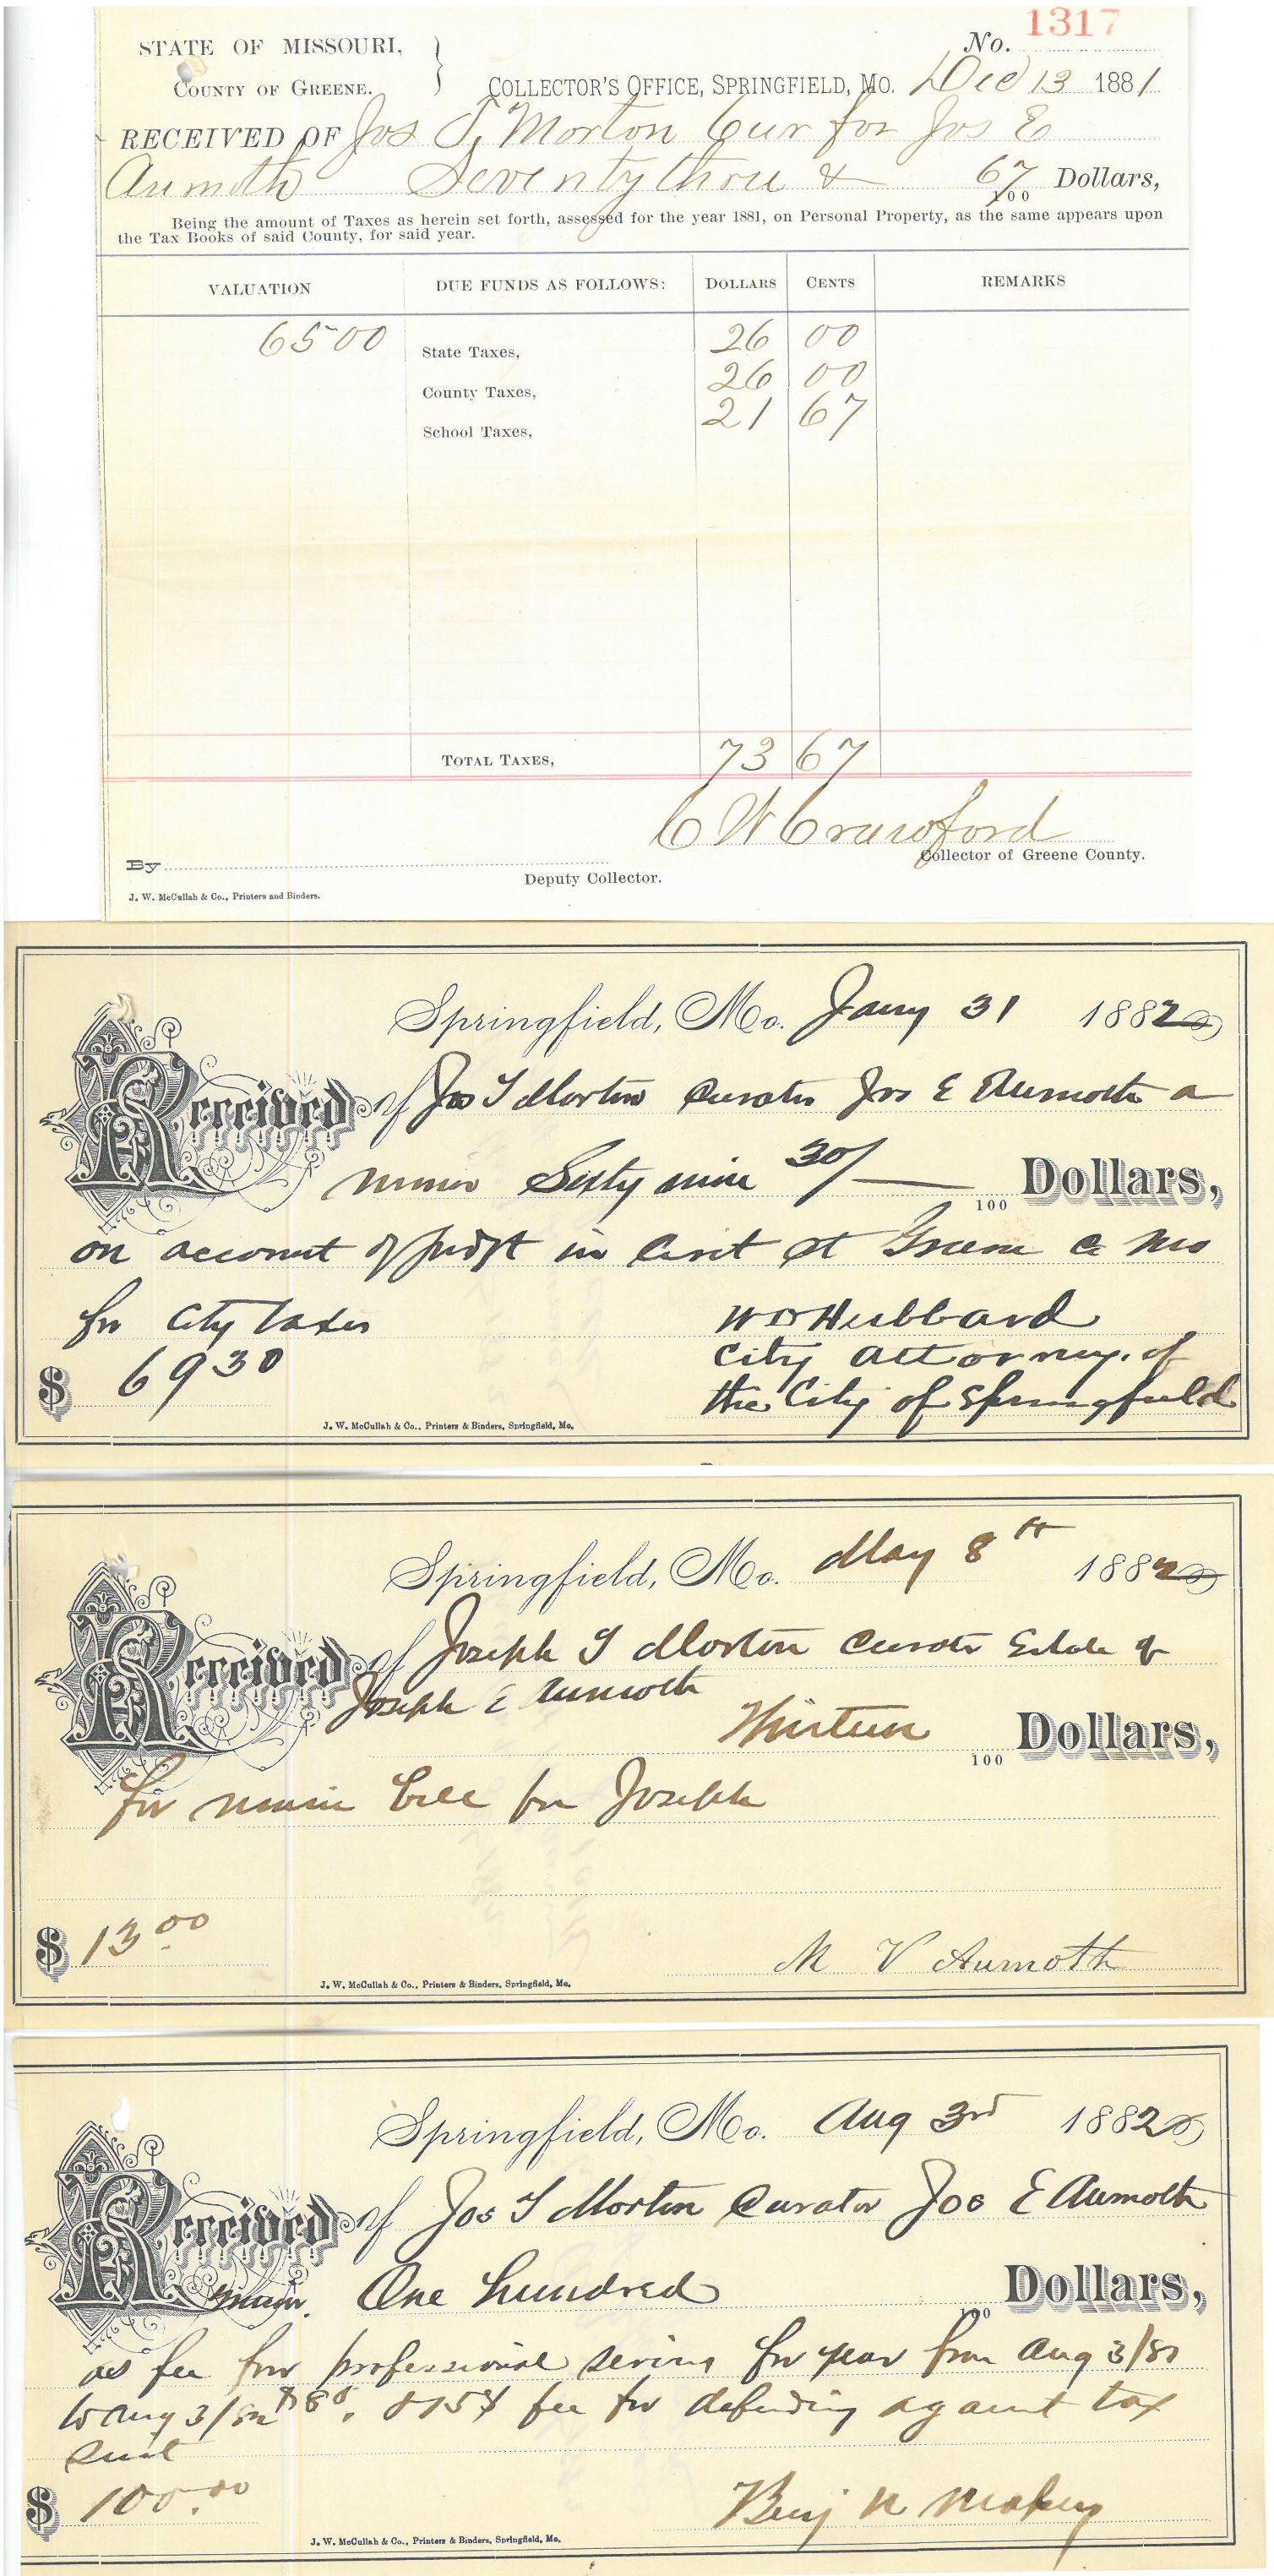 STATE OF MISSOURI,
COUNTY OF GREENE.
No. 1317
COLLECTOR'S OFFICE, SPRINGFIELD, MO. Dec 13 1881
RECEIVED OF Jos T. Morton Cur for Jos E
Aumoth Seventy three & 67/100 Dollars,
Being the amount of Taxes as herein set forth, assessed for the year 1881, on Personal Property, as the same appears upon
the Tax Books of said County, for said year.
VALUATION DUE FUNDS AS FOLLOWS: DOLLARS CENTS REMARKS
6500 State Taxes, 26 00
County Taxes, 26 00
School Taxes, 21 67
TOTAL TAXES, 73 67
C W Crawford
Collector of Greene County.
By
Deputy Collector.
J. W. McCullah & Co., Printers and Binders.
Springfield, Mo. Jany 31 1882
Received of Jos T Morton Curator Jos E Aumoth a
minor Sixty nine 30/100 Dollars,
on account of judgt in Circt Ct Greene Co Mo
for City taxes
W D Hubbard
City Attorney. of
the City of Springfield
$ 69 30
J. W. McCullah & Co., Printers & Binders, Springfield, Mo.
Springfield, Mo. May 8th 1882
Received of Joseph T Morton Curator Estate of
Joseph E Aumoth
Thirteen 100 Dollars,
for music bill for Joseph
$ 13.00
M V Aumoth
J. W. McCullah & Co., Printers & Binders, Springfield, Mo.
Springfield, Mo. Aug 3rd 1882
Received of Jos T Morton Curator Jos E Aumoth
minor. One hundred 100 Dollars,
as fee for professional for year from Aug 3/81
to Aug 3/82 fee for defending against tax
suit
$ 100.00
Benj N
J. W. McCullah & Co., Printers & Binders, Springfield, Mo.